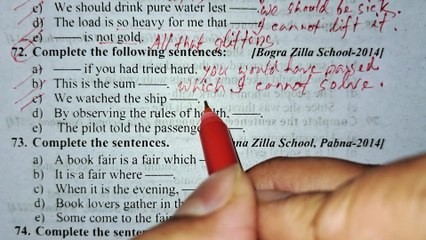 c) We should drink pure water lest — we should be sick.
d) The load is so heavy for me that — I cannot lift it.
e) — is not gold. All that glitters
72. Complete the following sentences: [Bogra Zilla School-2014]
a) — if you had tried hard. you would have passed
b) This is the sum —. which I cannot solve.
c) We watched the ship —.
d) By observing the rules of health, —.
e) The pilot told the passenge
73. Complete the sentences. Zilla School, Pabna-2014]
a) A book fair is a fair which —
b) It is a fair where —.
c) When it is the evening, —
d) Book lovers gather in th
e) Some come to the fair
74. Complete the sente